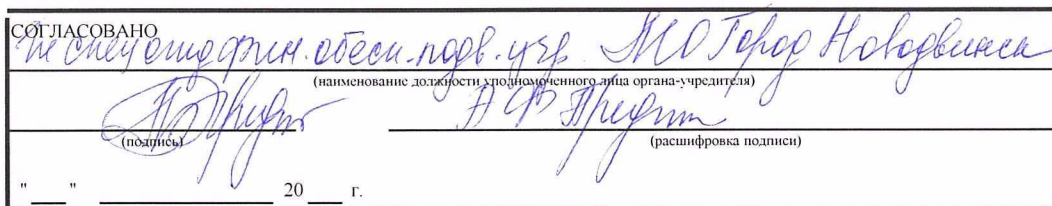 СОГЛАСОВАНО
фин. обесп. подв. учр. МО Город Новодвинск
(наименование должности уполномоченного лица органа-учредителя)
(подпись) (расшифровка подписи)
"___" ________ 20 ___ г.